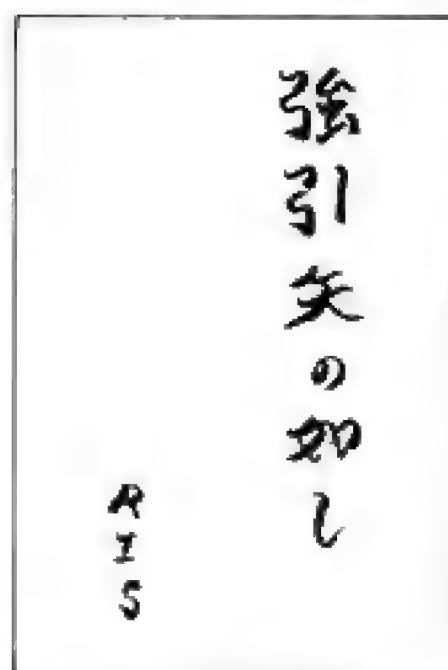 強引矢の如し
RIS